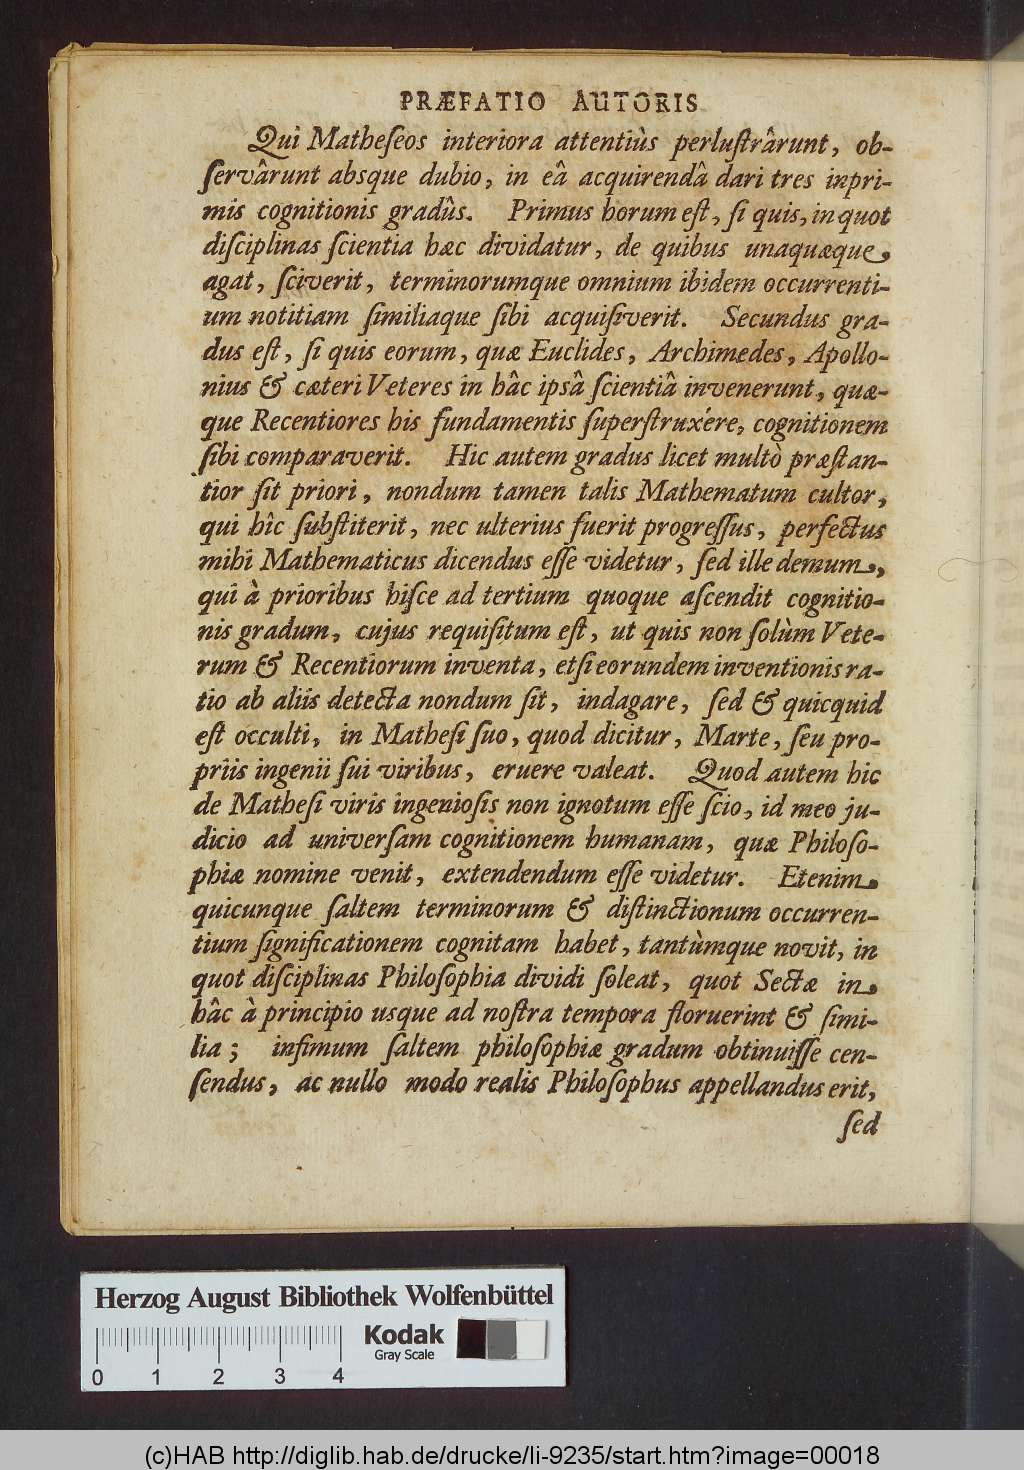 PRÆFATIO AUTORIS
Qui Matheſeos interiora attentiùs perluſtrârunt, ob-
ſervârunt absque dubio, in eâ acquirendâ dari tres inpri-
mis cognitionis gradûs. Primus horum eſt, ſi quis, in quot
diſciplinas ſcientia hæc dividatur, de quibus unaquæque
agat, ſciverit, terminorumque omnium ibidem occurrenti-
um notitiam ſimiliaque ſibi acquiſiverit. Secundus gra-
dus eſt, ſi quis eorum, quæ Euclides, Archimedes, Apollo-
nius & cæteri Veteres in hâc ipsâ ſcientiâ invenerunt, quæ-
que Recentiores his fundamentis ſuperſtruxére, cognitionem
ſibi comparaverit. Hic autem gradus licet multò præſtan-
tior ſit priori, nondum tamen talis Mathematum cultor,
qui hîc ſubſtiterit, nec ulterius fuerit progreſſus, perfectus
mihi Mathematicus dicendus eſſe videtur, ſed ille demum,
qui à prioribus hiſce ad tertium quoque aſcendit cognitio-
nis gradum, cujus requiſitum eſt, ut quis non ſolùm Vete-
rum & Recentiorum inventa, etſi eorundem inventionis ra-
tio ab aliis detecta nondum ſit, indagare, ſed & quicquid
eſt occulti, in Matheſi ſuo, quod dicitur, Marte, ſeu pro-
priis ingenii ſui viribus, eruere valeat. Quod autem hic
de Matheſi viris ingenioſis non ignotum eſſe ſcio, id meo ju-
dicio ad univerſam cognitionem humanam, quæ Philoſo-
phiæ nomine venit, extendendum eſſe videtur. Etenim
quicunque ſaltem terminorum & diſtinctionum occurren-
tium ſignificationem cognitam habet, tantùmque novit, in
quot diſciplinas Philoſophia dividi ſoleat, quot Sectæ in
hâc à principio usque ad noſtra tempora floruerint & ſimi-
lia; infimum ſaltem philoſophiæ gradum obtinuiſſe cen-
ſendus, ac nullo modo realis Philoſophus appellandus erit,
ſed
Herzog August Bibliothek Wolfenbüttel
Kodak
Gray Scale
0 1 2 3 4
(c)HAB http://diglib.hab.de/drucke/li-9235/start.htm?image=00018